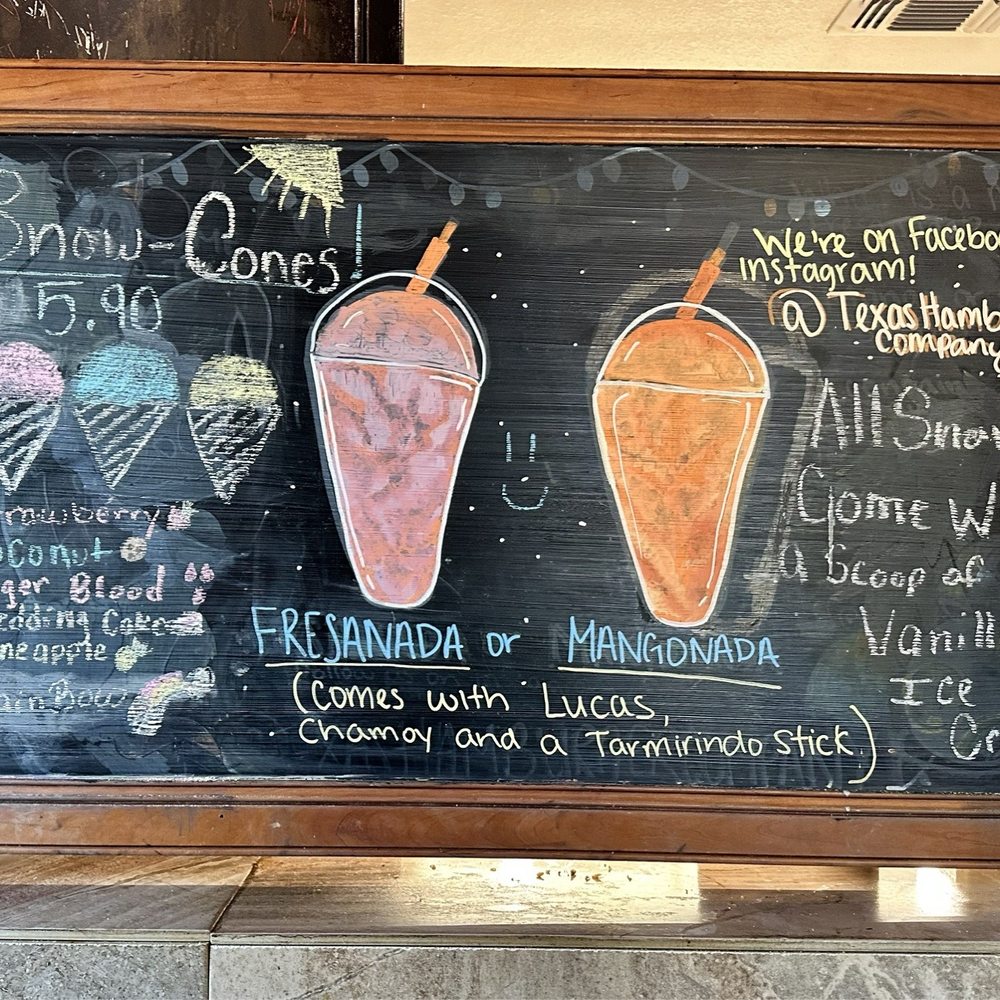 Snow-Cones!
5.90
rawberry
oconut
ger Blood
edding Cake
neapple
ainBow
FRESANADA or MANGONADA
(Comes with Lucas,
Chamoy and a Tarmirindo Stick)
We're on Facebo
Instagram!
@TexasHamb
Company
All Snow
Come W
a Scoop of
Vanill
Ice
Cr